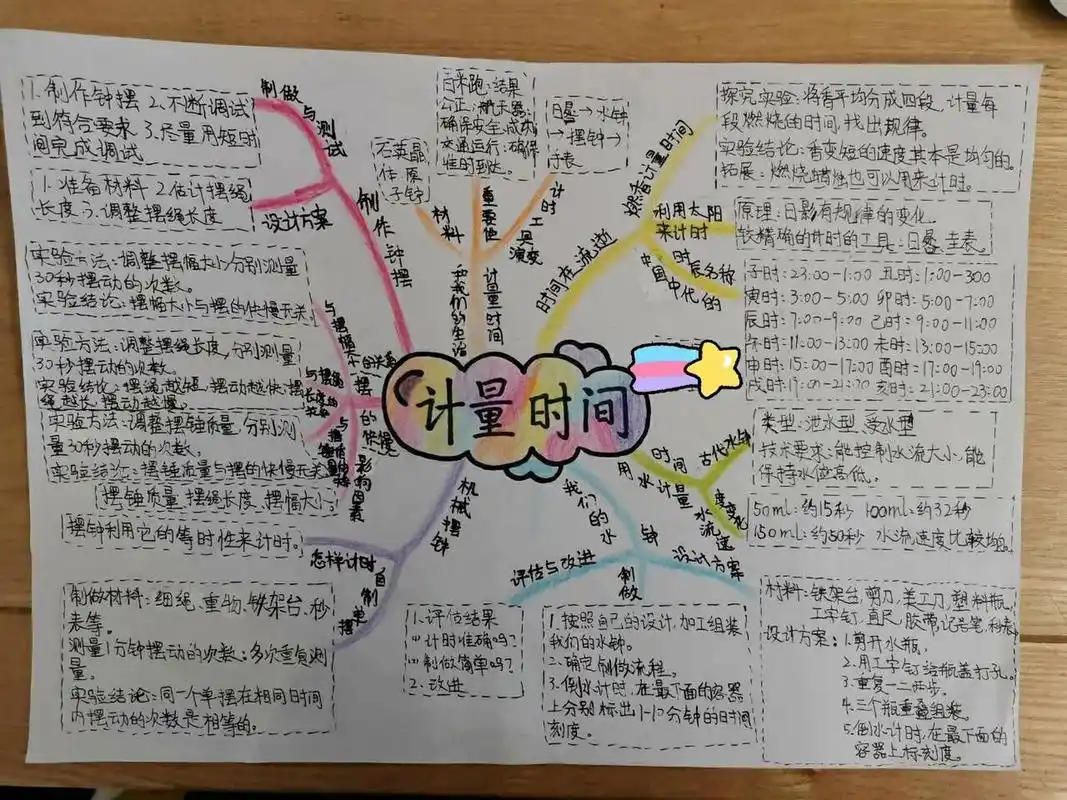 计量时间
时间在流逝
燃香计量时间
探究实验:将香平均分成四段,计量每
段燃烧的时间,找出规律。
实验结论:香变短的速度基本是均匀的。
拓展:燃烧蜡烛也可以用来计时。
利用太阳
来计时
原理:日影有规律的变化
较精确的计时的工具:日晷 圭表。
中国古代的
时辰名称
子时:23:00-1:00 丑时:1:00-300
寅时:3:00-5:00 卯时:5:00-7:00
辰时:7:00-9:00 巳时:9:00-11:00
午时:11:00-13:00 未时:13:00-15:00
申时:15:00-17:00 酉时:17:00-19:00
戌时:19:00-21:00 亥时:21:00-23:00
用水计量
时间
古代水钟
类型:泄水型、受水型
技术要求:能控制水流大小,能
保持水位高低。
水流速
度变化
50ml:约15秒 100ml:约32秒
150ml:约50秒 水流速度比较均匀。
我们的水
钟
设计方案
材料:铁架台,剪刀,美工刀,塑料瓶,
工字钉,直尺,胶带,记号笔,秒表
设计方案:1.剪开水瓶,
2.用工字钉给瓶盖打孔。
3.重复一二两步。
4.三个瓶重叠组装。
5.倒水计时,在最下面的
容器上标刻度。
制做
1.按照自己的设计,加工组装
我们的水钟。
2.确定制做流程。
3.倒水计时,在最下面的容器
上分别标出1-10分钟的时间
刻度。
评估与改进
1.评估结果
(1)计时准确吗?
(2)制做简单吗?
2.改进
机械摆钟
怎样计时
摆钟利用它的等时性来计时。
自制单摆
制做材料:细绳、重物、铁架台、秒
表等。
测量1分钟摆动的次数:多次重复测
量。
实验结论:同一个单摆在相同时间
内摆动的次数是相等的。
摆的快慢
影响因素
摆锤质量、摆绳长度、摆幅大小
实验方法:调整摆幅大小,分别测量
30秒摆动的次数。
实验结论:摆幅大小与摆的快慢无关
实验方法:调整摆绳长度,分别测量
30秒摆动的次数。
实验结论:摆绳越短,摆动越快,摆
绳越长,摆动越慢。
实验方法:调整摆锤质量,分别测
量30秒摆动的次数。
实验结论:摆锤质量与摆的快慢无关
制作钟摆
制做与测试
1.制作钟摆 2.不断调试
到符合要求 3.尽量用短时
间完成调试
设计方案
1.准备材料 2.估计摆绳
长度 3.调整摆绳长度
计量时间
和我们的生活
材料
石英晶
体 原
子钟
重要性
百米跑:结果
公正;航天器:
确保安全、成功
交通运行:确保
准时到达。
计时工具演变
日晷→水钟
→摆钟→
钟表